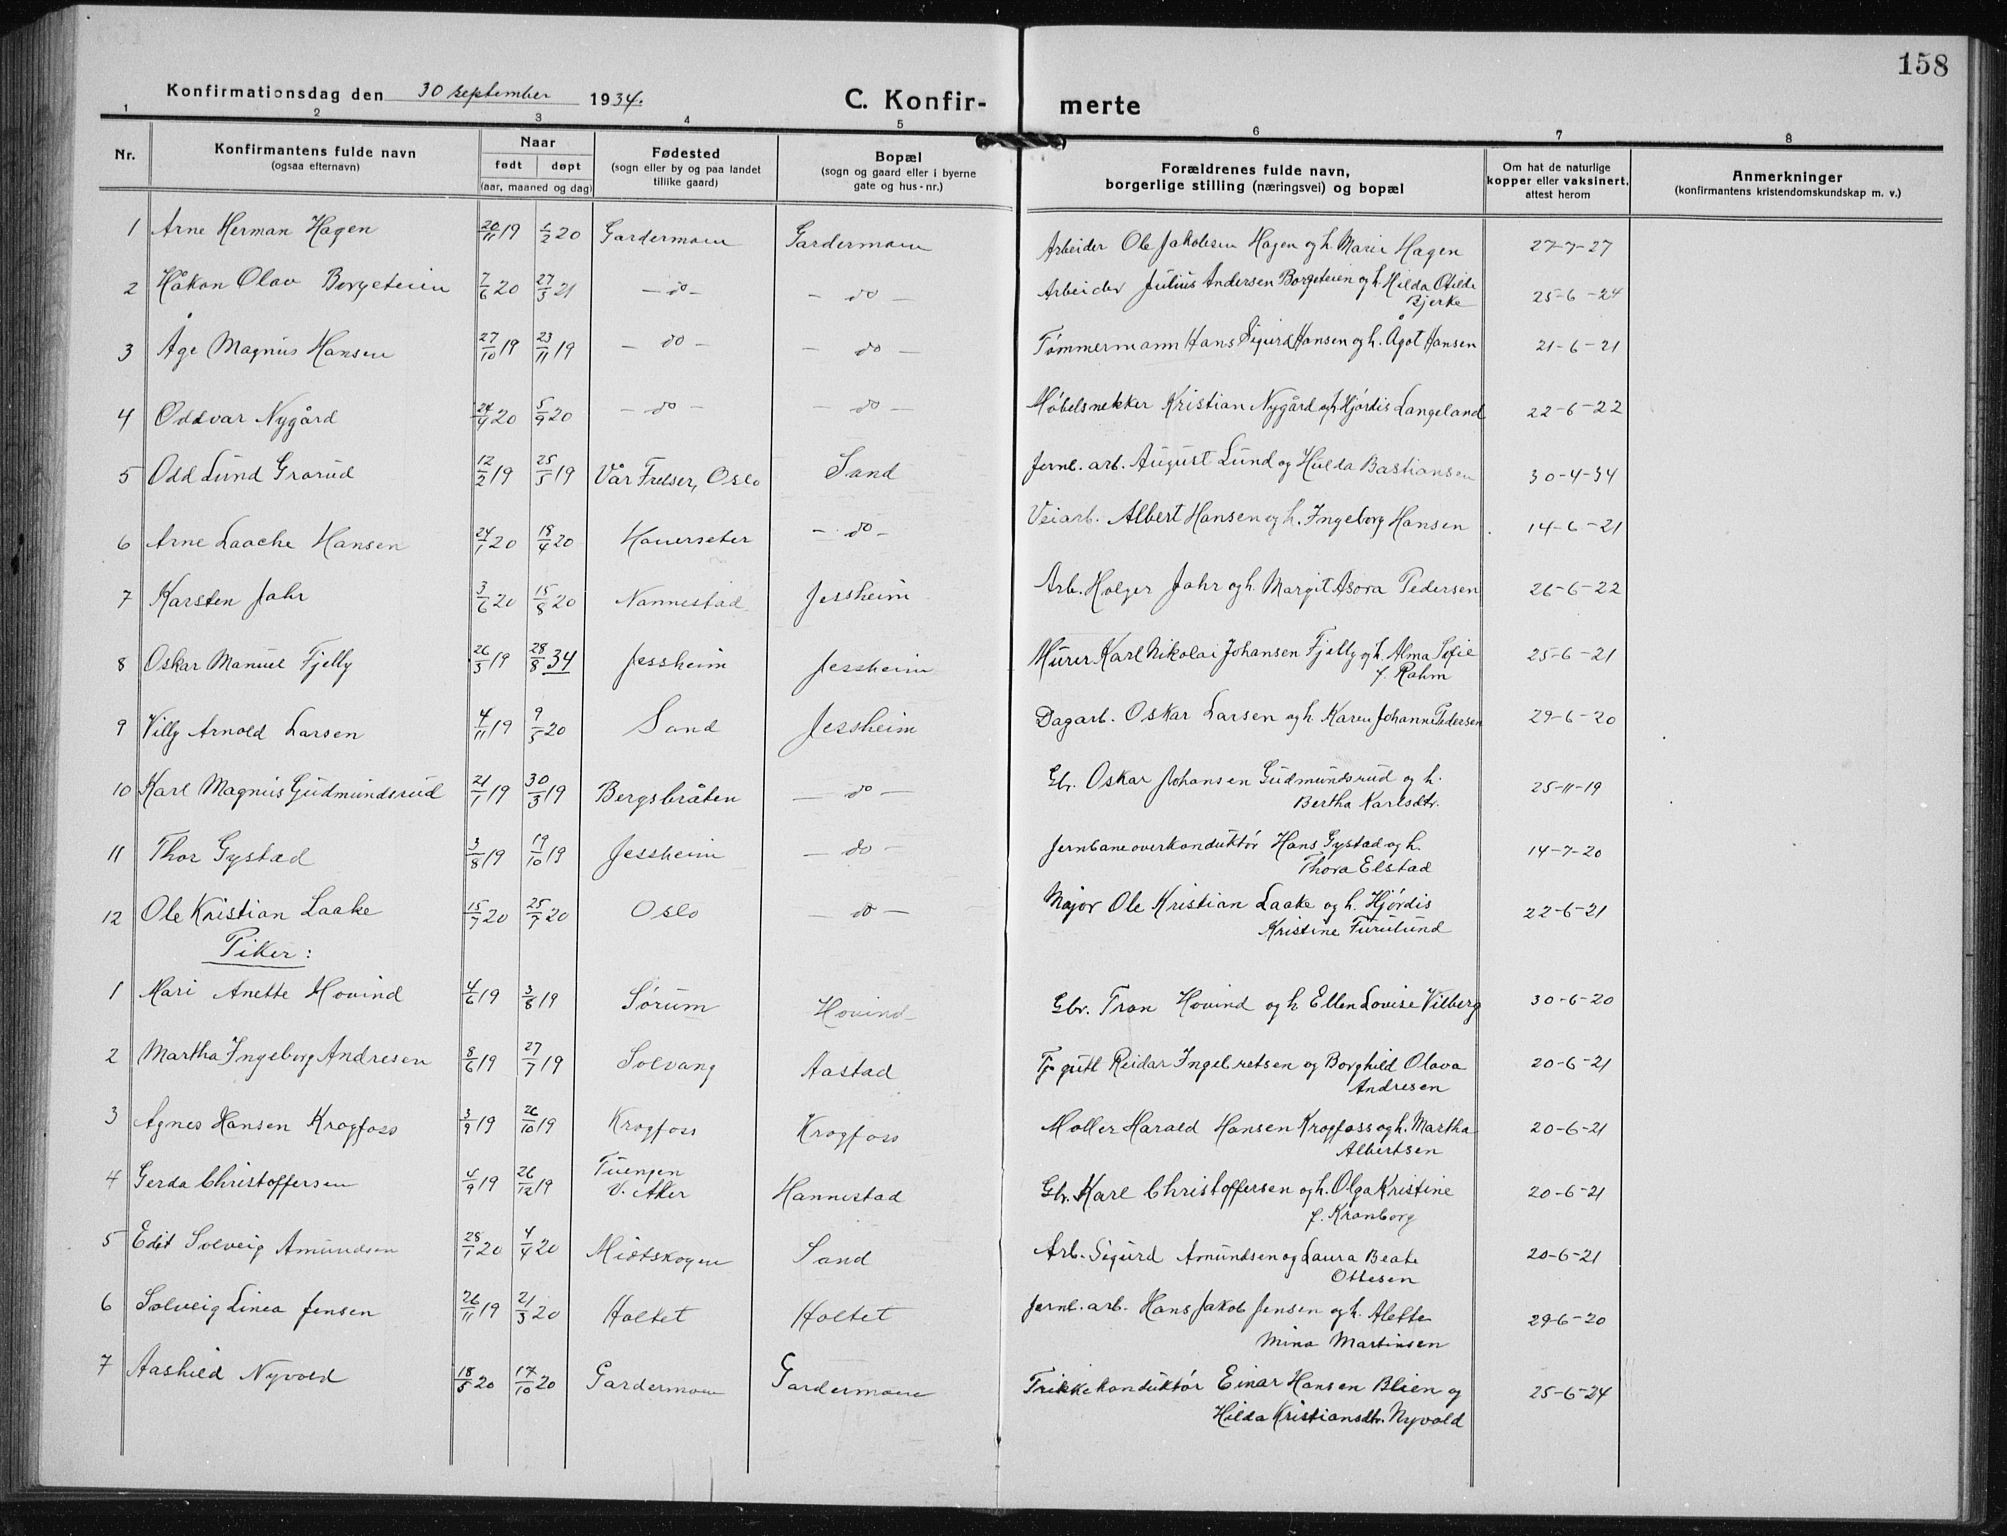 158
Konfirmationsdag den 30 september 1934. C. Konfir- merte
1 2 3 4 5 6 7 8
Nr. Konfirmantens fulde navn (ogsaa efternavn) Naar født døpt (aar, maaned og dag) Fødested (sogn eller by og paa landet tillike gaard) Bopæl (sogn og gaard eller i byerne gate og hus-nr.) Forældrenes fulde navn, borgerlige stilling (næringsvei) og bopæl Om hat de naturlige kopper eller vaksinert, attest herom Anmerkninger (konfirmantens kristendomskundskap m. v.)
1 Arne Herman Hagen 20/11 19 /2 20 Gardermoen Gardermoen Arbeider Ole Jakobsen Hagen og h. Marie Hagen 27-7-27
2 Håkon Olav Borgeteien 7/6 20 27/3 21 - do - - do - Arbeider Julius Andersen Borgeteien og h. Hilda Otilde
Bjerke 25-6-24
3 Åge Magnus Hansen 27/10 19 23/11 19 - do - - do - Tømmermann Hans Sigurd Hansen og h. Ågot Hansen 21-6-21
4 Oddvar Nygård 24/4 20 5/9 20 - do - - do - Møbelsnekker Kristian Nygård og h. Hjørdis Langeland 22-6-22
5 Odd Lund Grorud 12/2 19 25/5 19 Vår Frelser, Oslo Sand Jernb. arb. August Lund og Hulda Bastiansen 30-4-34
6 Arne Laache Hansen 24/1 20 18/4 20 Hauerseter - do - Veiarb. Albert Hansen og h. Ingeborg Hansen 14-6-21
7 Karsten Jahr 3/6 20 15/8 20 Nannestad Jessheim Arb. Holger Jahr og h. Margit Asora Pedersen 26-6-22
8 Oskar Manuel Fjelly 26/3 19 28/8 34 Jessheim Jessheim Murer Karl Nikolai Johansen Fjelly og h. Alma Sofie
f. Rahm 25-6-21
9 Villy Arnold Larsen 4/11 19 9/5 20 Sand Jessheim Dagarb. Oskar Larsen og h. Karen Johanne Pedersen 29-6-20
10 Karl Magnus Gudmundsrud 21/1 19 30/3 19 Bergsbråten - do - Gbr. Oskar Johansen Gudmundsrud og h.
Bertha Karlsdtr. 25-11-19
11 Thor Gystad 3/8 19 19/10 19 Jessheim - do - Jernbaneoverkonduktør Hans Gystad og h.
Thora Elstad 14-7-20
12 Ole Kristian Laake 15/7 20 25/7 20 Oslo do - Major Ole Kristian Laake og h. Hjørdis
Kristine Furulund 22-6-21
Piker:
1 Mari Anette Hovind 4/6 19 3/8 19 Sørum Hovind Gbr. Tron Hovind og h. Ellen Lovise Vilberg 30-6-20
2 Martha Ingeborg Andresen 8/6 19 27/7 19 Solvang Aastad Tj. gutt Reidar Ingebretsen og Borghild Olava
Andresen 20-6-21
3 Agnes Hansen Krogfoss 3/9 19 26/10 19 Krogfoss Krogfoss Møller Harald Hansen Krogfoss og h. Martha
Albertsen 20-6-21
4 Gerda Christoffersen 4/9 19 26/12 19 Tuengen
V. Aker Hannestad Gbr. Karl Christoffersen og h. Olga Kristine
f. Kronborg 20-6-21
5 Edit Solveig Amundsen 28/1 20 4/4 20 Mistskogen Sand Arb. Sigurd Amundsen og Laura Beate
Ottesen 20-6-21
6 Solveig Linea Jensen 26/11 19 21/3 20 Holtet Holtet Jernb. arb. Hans Jakob Jensen og h. Alette
Mina Martinsen 29-6-20
7 Aashild Nyvold 18/5 20 17/10 20 Gardermoen Gardermoen Trikkekonduktør Einar Hansen Blien og
Hilda Kristiansdtr. Nyvold 25-6-24